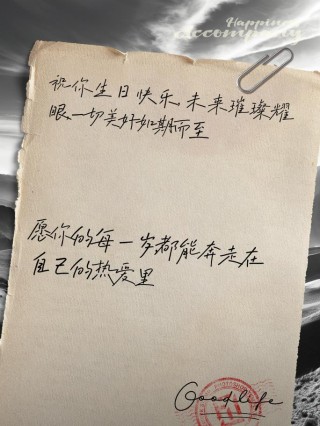 Happiness
Accompany
祝你生日快乐,未来璀璨耀
眼,一切美好如期而至
愿你的每一岁都能奔走在
自己的热爱里
Goodlife